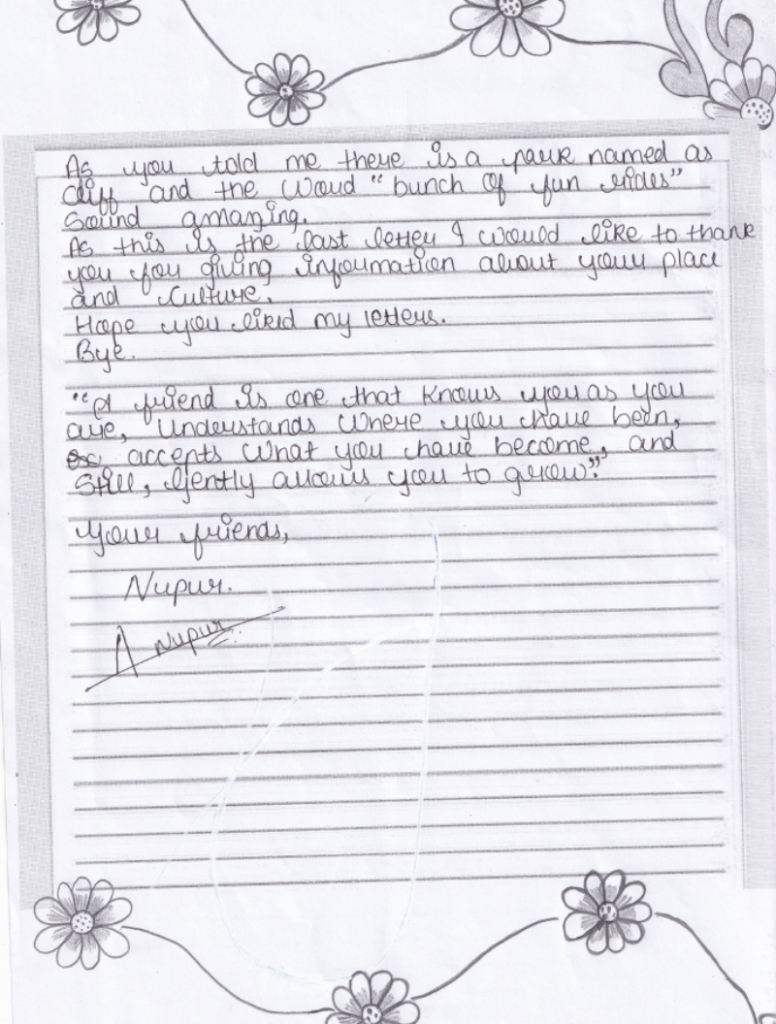 As you told me there is a park named as
cliff and the word "bunch of fun rides"
Sound amazing.
As this is the last letter I would like to thank
you for giving information about your place
and culture.
Hope you liked my letters.
Bye.
"A friend is one that knows you as you
are, Understands Where you have been,
accepts What you have become, and
Still, Gently allows you to grow".
Your friends,
Nupur.
Nupur